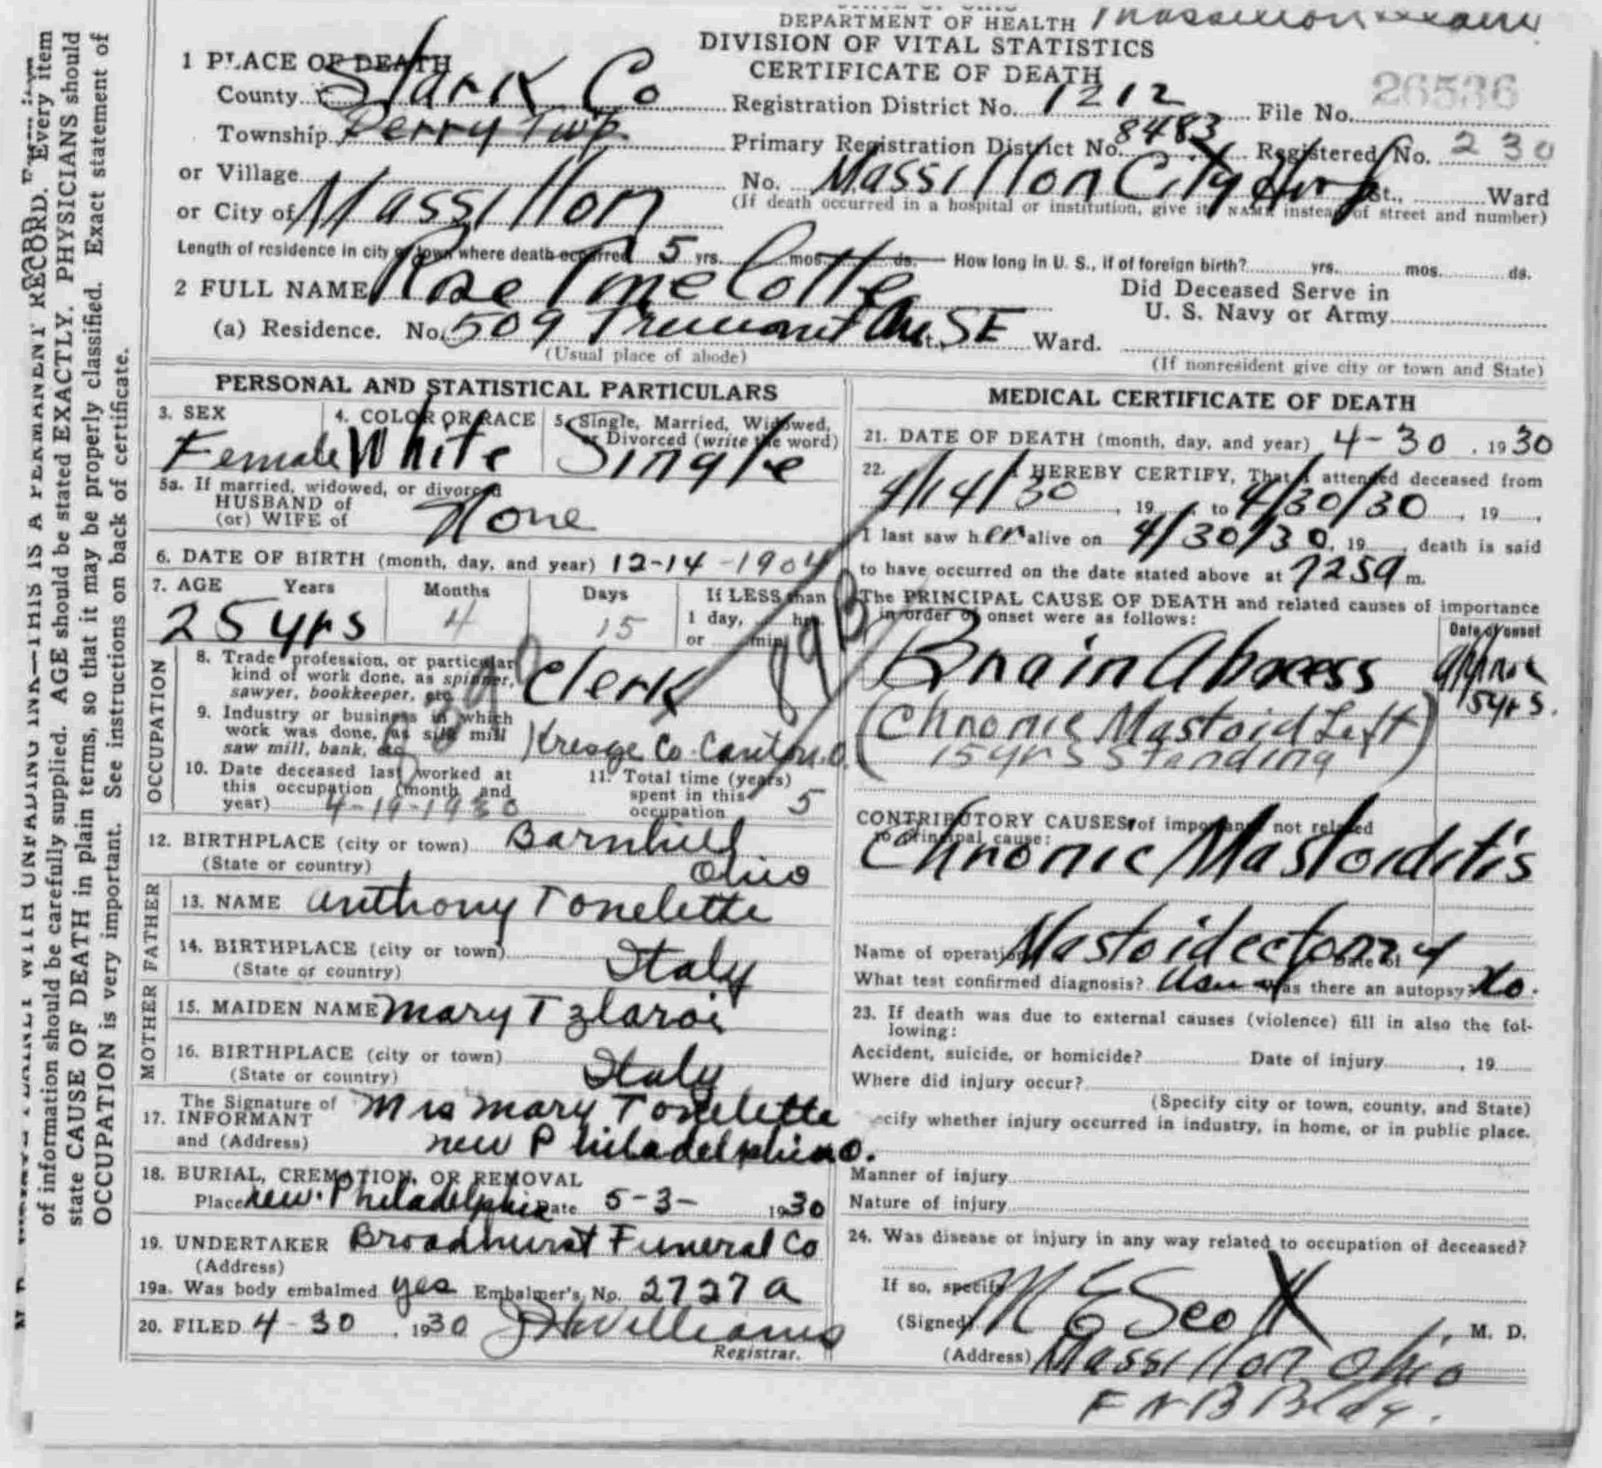 DEPARTMENT OF HEALTH
DIVISION OF VITAL STATISTICS
CERTIFICATE OF DEATH
1 PLACE OF DEATH
County Stark Co Registration District No. 1212 File No. 26536
Township Perry Twp. Primary Registration District No. 8483 Registered No. 230
or Village No. Massillon City Hosp St., Ward
or City of Massillon (If death occurred in a hospital or institution, give its NAME instead of street and number)
Length of residence in city or town where death occurred 5 yrs. mos. ds. How long in U. S., if of foreign birth? yrs. mos. ds.
2 FULL NAME Rose Did Deceased Serve in
U. S. Navy or Army
(a) Residence. No. 509 Tremont Ave St., SE Ward.
(Usual place of abode) (If nonresident give city or town and State)
PERSONAL AND STATISTICAL PARTICULARS
3. SEX 4. COLOR OR RACE 5. Single, Married, Widowed,
or Divorced (write the word)
Female White Single
5a. If married, widowed, or divorced
HUSBAND of
(or) WIFE of None
6. DATE OF BIRTH (month, day, and year) 12-14-1904
7. AGE Years Months Days If LESS than
1 day, hrs.
or min.
25 yrs 4 15
OCCUPATION
8. Trade profession, or particular
kind of work done, as spinner,
sawyer, bookkeeper, etc. Clerk
9. Industry or business in which
work was done, as silk mill
saw mill, bank, etc. Kresge Co. Canton. O.
10. Date deceased last worked at
this occupation (month and
year) 4-19-1930
11. Total time (years)
spent in this
occupation 5
89B
12. BIRTHPLACE (city or town) Barnhill
(State or country) Ohio
FATHER
13. NAME Anthony Tonelette
14. BIRTHPLACE (city or town)
(State or country) Italy
MOTHER
15. MAIDEN NAME Mary
16. BIRTHPLACE (city or town)
(State or country) Italy
The Signature of
17. INFORMANT Mrs Mary Tonelette
and (Address) New Philadelphia O.
18. BURIAL, CREMATION, OR REMOVAL
Place New Philadelphia Date 5-3- 1930
19. UNDERTAKER Broadhurst Funeral Co
(Address)
19a. Was body embalmed yes Embalmer's No. 2727 a
20. FILED 4-30, 1930 J H Williams
Registrar.
MEDICAL CERTIFICATE OF DEATH
21. DATE OF DEATH (month, day, and year) 4-30, 1930
22. I HEREBY CERTIFY, That I attended deceased from
4/14/30, 19 to 4/30/30, 19
I last saw her alive on 4/30/30, 19, death is said
to have occurred on the date stated above at m.
The PRINCIPAL CAUSE OF DEATH and related causes of importance
in order of onset were as follows:
Date of onset
Brain Abscess
(Chronic Mastoid Left
15 yrs standing)
CONTRIBUTORY CAUSES of importance not related
to principal cause:
Chronic Mastoiditis
Name of operation Mastoidectomy Date of
What test confirmed diagnosis? Was there an autopsy? No.
23. If death was due to external causes (violence) fill in also the fol-
lowing:
Accident, suicide, or homicide? Date of injury, 19
Where did injury occur?
(Specify city or town, county, and State)
ecify whether injury occurred in industry, in home, or in public place.
Manner of injury
Nature of injury
24. Was disease or injury in any way related to occupation of deceased?
If so, specify
(Signed) M E Scott, M. D.
(Address) Massillon Ohio
F N B Bldg.
of information should be carefully supplied. AGE should be stated EXACTLY. PHYSICIANS should
state CAUSE OF DEATH in plain terms, so that it may be properly classified. Exact statement of
OCCUPATION is very important. See instructions on back of certificate.